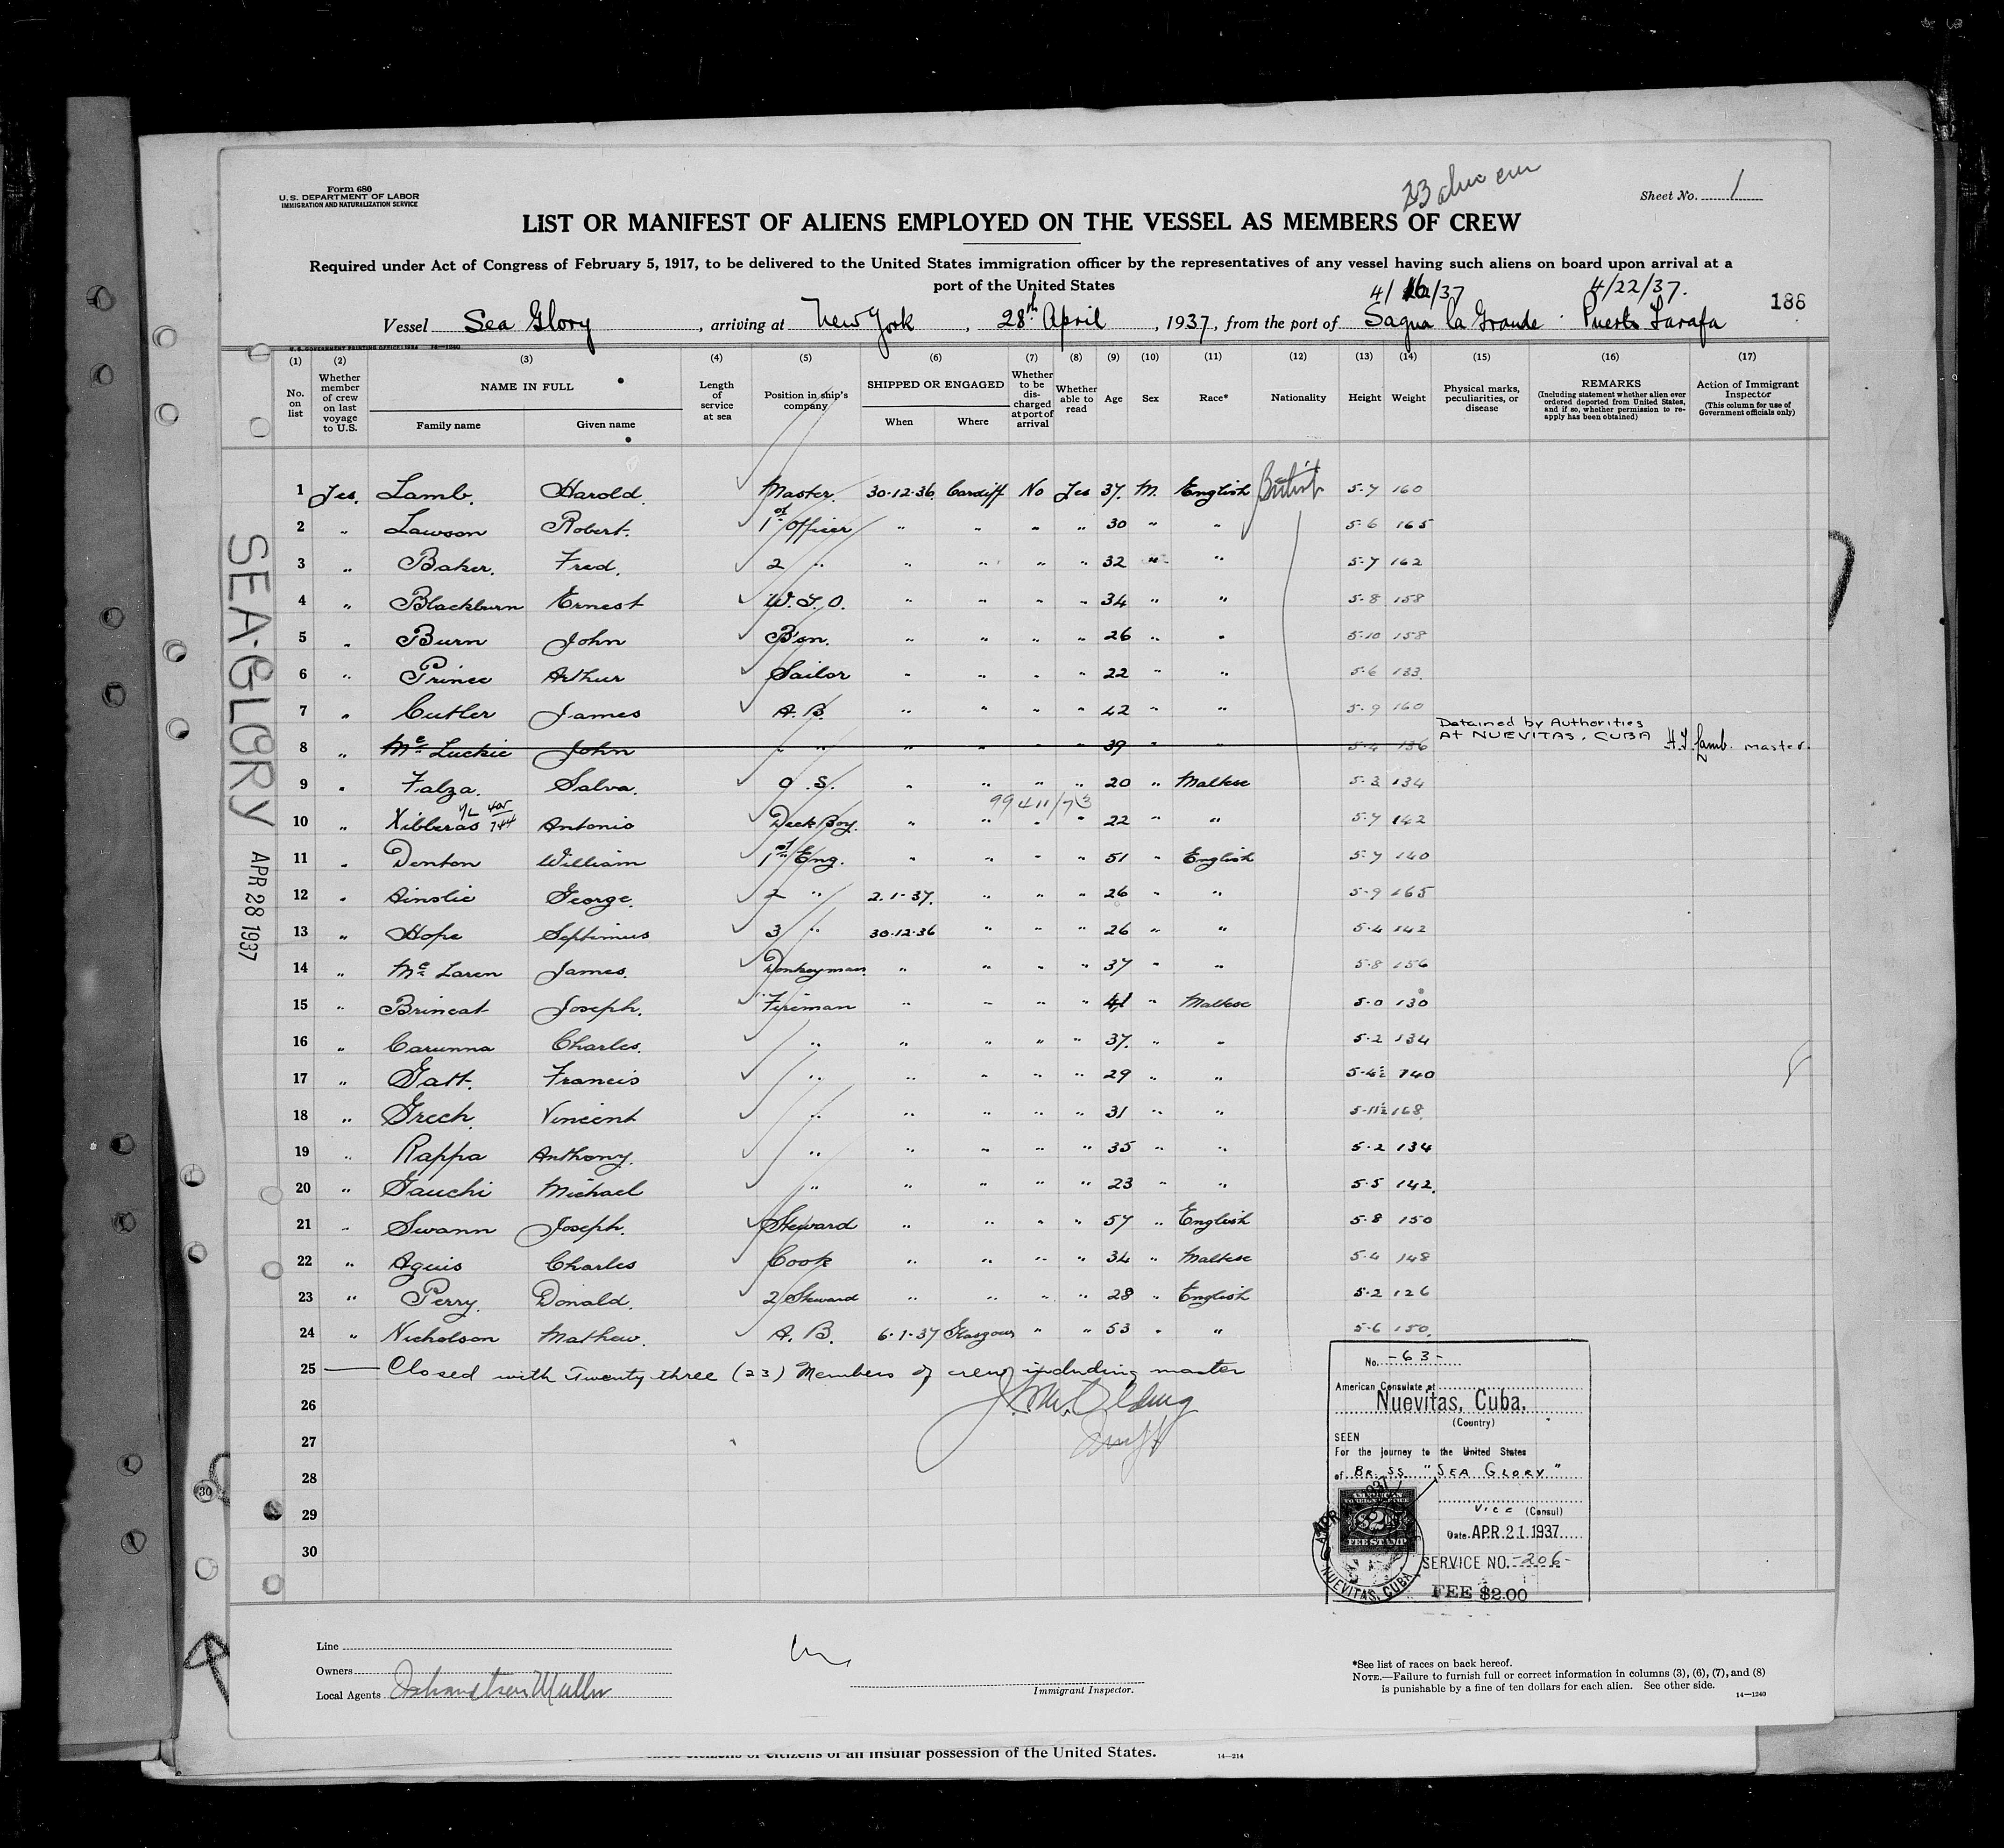 Form 680
U.S. DEPARTMENT OF LABOR
IMMIGRATION AND NATURALIZATION SERVICE
23
Sheet No. 1
LIST OR MANIFEST OF ALIENS EMPLOYED ON THE VESSEL AS MEMBERS OF CREW
Required under Act of Congress of February 5, 1917, to be delivered to the United States immigration officer by the representatives of any vessel having such aliens on board upon arrival at a
port of the United States
4/22/37.
Vessel Sea Glory, arriving at New York, 28th April, 1937, from the port of Sagua la Grande Puerto Tarafa
186
U.S. GOVERNMENT PRINTING OFFICE: 1934 14—1240
(1) (2) (3) (4) (5) (6) (7) (8) (9) (10) (11) (12) (13) (14) (15) (16) (17)
No. on list
Whether member of crew on last voyage to U.S.
NAME IN FULL
Family name Given name
Length of service at sea
Position in ship's company
SHIPPED OR ENGAGED
When Where
Whether to be discharged at port of arrival
Whether able to read
Age
Sex
Race*
Nationality
Height
Weight
Physical marks, peculiarities, or disease
REMARKS
(Including statement whether alien ever ordered deported from United States, and if so, whether permission to reapply has been obtained)
Action of Immigrant Inspector
(This column for use of Government officials only)
1 Yes. Lamb. Harold. Master. 30-12-36. Cardiff No Yes 37. M. English British 5-7 160
2 " Lawson Robert. 1st Officer " " " " 30 " " 5-6 165
3 " Baker. Fred. 2 " " " " " 32 " " 5-7 162
4 " Blackburn Ernest W.T.O. " " " " 34 " " 5-8 158
5 " Burn John B'sn. " " " " 26 " " 5-10 158
6 " Prince Arthur Sailor " " " " 22 " " 5-6 133.
7 " Cutler James A.B. " " " " 42 " " 5-9 160
Detained by Authorities
At NUEVITAS, CUBA
8 " Mc Luckie John " " " " " " 39 " " 5-4 136 H.T. Lamb. master.
9 " Falza. Salva. O.S. " " " " 20 " Maltese 5-3 134
99411/73
10 " Xibberas Antonio Deck Boy. " " " " 22 " " 5-7 142
11 " Denton William 1st Eng. " " " " 51 " English 5-7 140
12 " Ainslie George. 2 " 2.1-37. " " " 26 " " 5-9 165
13 " Hope Septimus 3 " 30-12-36 " " " 26 " " 5-4 142
14 " Mc Laren James. Donkeyman " " " " 37 " " 5-8 156
15 " Brincat Joseph. Fireman " " " " 41 " Maltese 5-0 130
16 " Carunna Charles. " " " " " 37. " " 5-2 134
17 " Gatt. Francis " " " " " 29 " " 5-4½ 140
18 " Grech. Vincent " " " " " 31 " " 5-11½ 168.
19 " Rappa Anthony. " " " " " 35 " " 5-2 134
20 " Gauchi Michael " " " " " 23 " " 5-5 142.
21 " Swann Joseph. Steward " " " " 57 " English 5-8 150
22 " Aguis Charles Cook " " " " 34 " Maltese 5-4 148
23 " Perry. Donald. 2 Steward " " " " 28 " English 5-2 126
24 " Nicholson Mathew. A.B. 6-1-37 Glasgow " " 53 " " 5-6 150.
25 Closed with Twenty three (23) Members of crew including master
26
27
28
29
30
SEA-GLORY APR 28 1937
No. -63-
American Consulate at
Nuevitas, Cuba.
(Country)
SEEN
For the journey to the United States
of BR. SS. "SEA GLORY"
Vice (Consul)
Date APR. 21. 1937
SERVICE NO. -206-
FEE $2.00
AMERICAN
FOREIGN SERVICE
$2
FEE STAMP
NUEVITAS, CUBA
Line
Owners
Local Agents
Immigrant Inspector.
*See list of races on back hereof.
NOTE.—Failure to furnish full or correct information in columns (3), (6), (7), and (8)
is punishable by a fine of ten dollars for each alien. See other side.
14—1240
citizens of an insular possession of the United States.
14—214
30